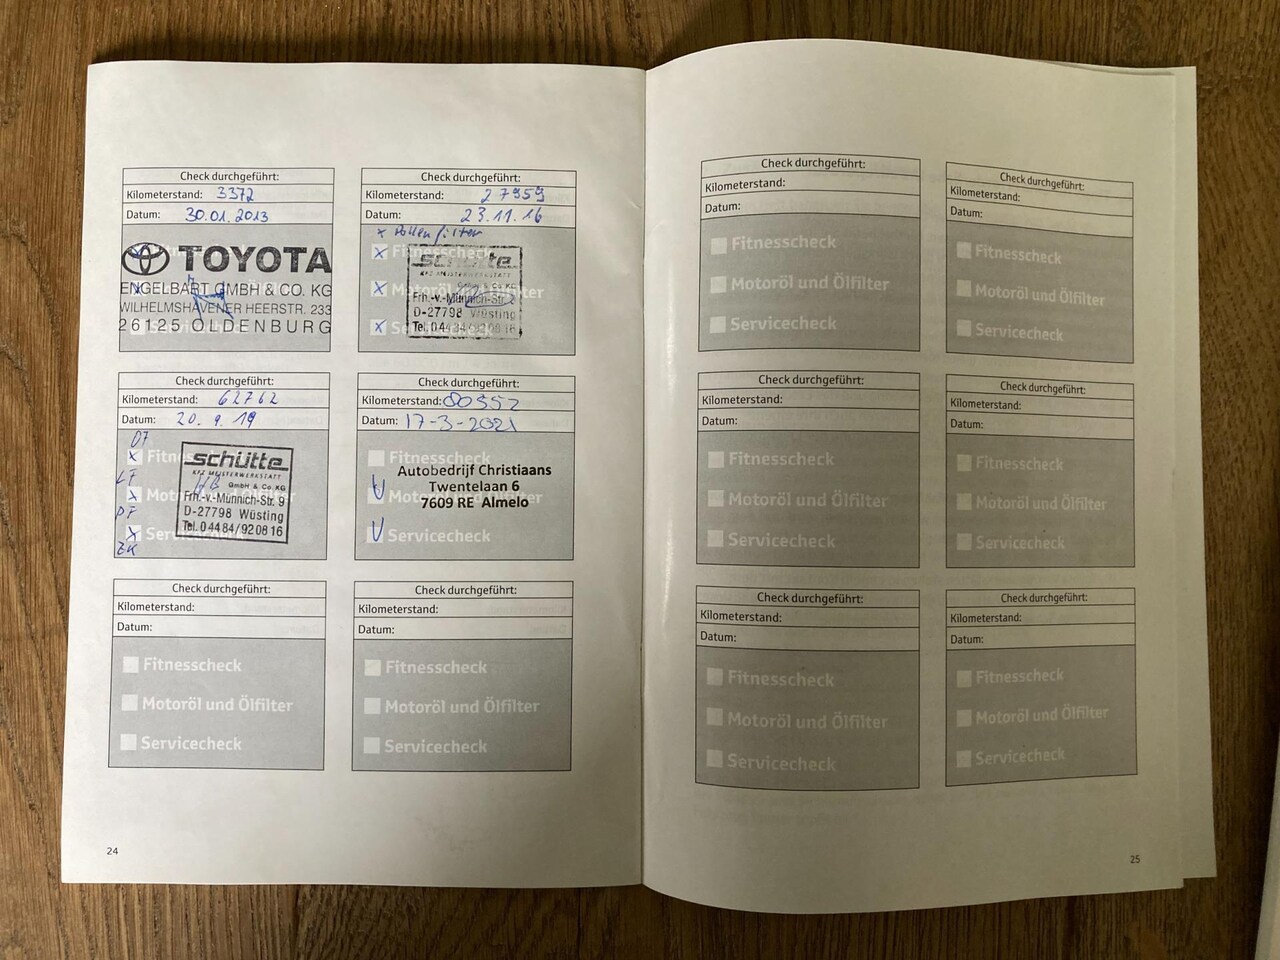 Check durchgeführt:
Kilometerstand: 3372
Datum: 30.01.2013
Fitnesscheck
TOYOTA
ENGELBART GMBH & CO. KG
WILHELMSHAVENER HEERSTR. 233
26125 OLDENBURG
Servicecheck
Check durchgeführt:
Kilometerstand: 27959
Datum: 23.11.16
x Pollenfilter
x Fitnesscheck
schütte
KFZ MEISTERWERKSTATT
GmbH & Co KG
x Motoröl und Ölfilter
Frh.-v.-Münnich-Str.
D-27798 Wüsting
Tel. 04484/920816
x Servicecheck
Check durchgeführt:
Kilometerstand: 62762
Datum: 20.9.19
x Fitnesscheck
schütte
KFZ MEISTERWERKSTATT
GmbH & Co KG
LF
x Motoröl und Ölfilter
Frh.-v.-Münnich-Str. 9
PF
D-27798 Wüsting
x Servicecheck
Tel. 04484/920816
ZK
Check durchgeführt:
Kilometerstand:
Datum: 17-3-2021
Fitnesscheck
Autobedrijf Christiaans
Twentelaan 6
7609 RE Almelo
Servicecheck
Check durchgeführt:
Kilometerstand:
Datum:
Fitnesscheck
Motoröl und Ölfilter
Servicecheck
Check durchgeführt:
Kilometerstand:
Datum:
Fitnesscheck
Motoröl und Ölfilter
Servicecheck
24
Check durchgeführt:
Kilometerstand:
Datum:
Fitnesscheck
Motoröl und Ölfilter
Servicecheck
Check durchgeführt:
Kilometerstand:
Datum:
Fitnesscheck
Motoröl und Ölfilter
Servicecheck
Check durchgeführt:
Kilometerstand:
Datum:
Fitnesscheck
Motoröl und Ölfilter
Servicecheck
Check durchgeführt:
Kilometerstand:
Datum:
Fitnesscheck
Motoröl und Ölfilter
Servicecheck
Check durchgeführt:
Kilometerstand:
Datum:
Fitnesscheck
Motoröl und Ölfilter
Servicecheck
Check durchgeführt:
Kilometerstand:
Datum:
Fitnesscheck
Motoröl und Ölfilter
Servicecheck
25